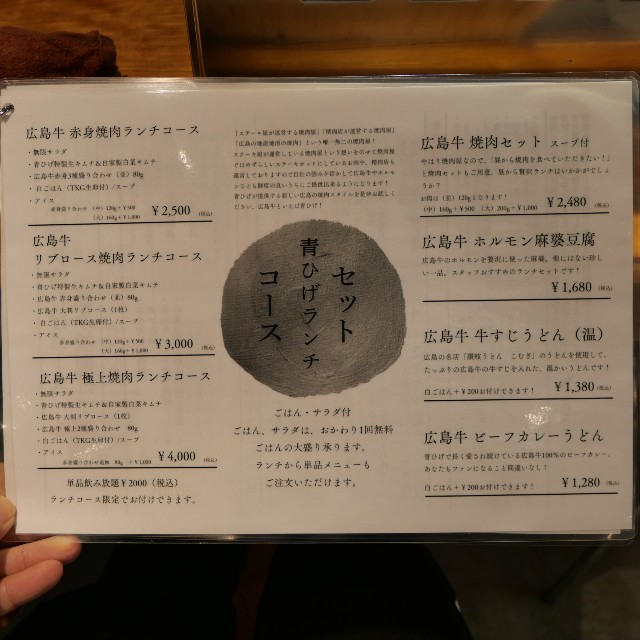 広島牛 赤身焼肉ランチコース
・無限サラダ
・青ひげ特製生キムチ&自家製白菜キムチ
・広島牛赤身3種盛り合わせ（並）80g
・白ごはん（TKG生卵付）/スープ
・アイス
赤身盛り合わせ （中）120g＋￥500
（大）160g＋￥1,000
￥2,500（税込）
広島牛
リブロース焼肉ランチコース
・無限サラダ
・青ひげ特製生キムチ&自家製白菜キムチ
・広島牛 赤身盛り合わせ（並）80g
・広島牛 大判リブロース（1枚）
・白ごはん（TKG生卵付）/スープ
・アイス
赤身盛り合わせ （中）120g＋￥500
（大）160g＋￥1,000
￥3,000（税込）
広島牛 極上焼肉ランチコース
・無限サラダ
・青ひげ特製生キムチ&自家製白菜キムチ
・広島牛 大判リブロース（1枚）
・広島牛 極上2種盛り合わせ 80g
・白ごはん（TKG生卵付）/スープ
・アイス
￥4,000（税込）
単品飲み放題￥2000（税込）
ランチコース限定でお付けできます。
「ステーキ屋が運営する焼肉屋」「精肉店が運営する焼肉屋」
青ひげランチ
セット
コース
ごはん・サラダ付
ごはん、サラダは、おかわり1回無料
ごはんの大盛り承ります。
ランチから単品メニューも
ご注文いただけます。
広島牛 焼肉セット スープ付
やはり焼肉屋なので、「昼から焼肉を食べていただきたい！」
と焼肉セットもご用意。昼から贅沢ランチはいかがでしょ
うか？
お肉は（並）120gとなります！
（中）160g＋￥500 （大）200g＋￥1,000
￥2,480（税込）
広島牛 ホルモン麻婆豆腐
広島牛のホルモンを贅沢に使った麻婆。他にはない珍し
い一品。スタッフおすすめのランチセットです！
￥1,680（税込）
広島牛 牛すじうどん（温）
広島の名店「讃岐うどん こむぎ」のうどんを使用して、
たっぷりの広島牛の牛すじを入れた、温かいうどんです！
白ごはん＋￥200お付けできます！ ￥1,380（税込）
広島牛 ビーフカレーうどん
青ひげで長く愛され続けている広島牛100%のビーフカレー。
あなたもファンになること間違いなし！
白ごはん＋￥200お付けできます！ ￥1,280（税込）